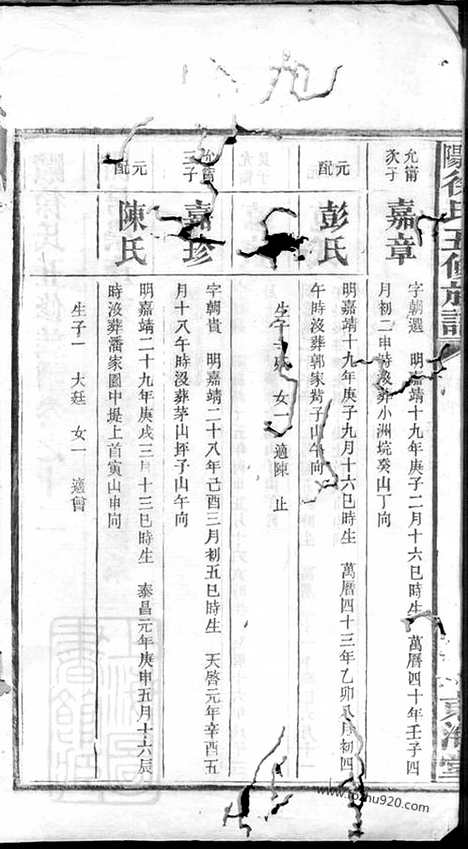 陽徐氏五修族譜
東海堂
允甯次子 嘉章
字朝選 明嘉靖十九年庚子二月十六巳時生 萬曆四十年壬子四
月初二申時沒葬小洲垸癸山丁向
元配 彭氏
明嘉靖十九年庚子九月十六巳時生 萬曆四十三年乙卯八月初四
午時沒葬郭家嵴子山午向
生子 女一 適陳 止
允甯三子 嘉珍
字朝貴 明嘉靖二十八年己酉三月初五巳時生 天啓元年辛酉五
月十八午時沒葬茅山坪子山午向
元配 陳氏
明嘉靖二十九年庚戌三月十三巳時生 泰昌元年庚申五月十六辰
時沒葬潘家園中堤上首寅山申向
生子一 大廷 女一 適曾
www.tozhu920.com